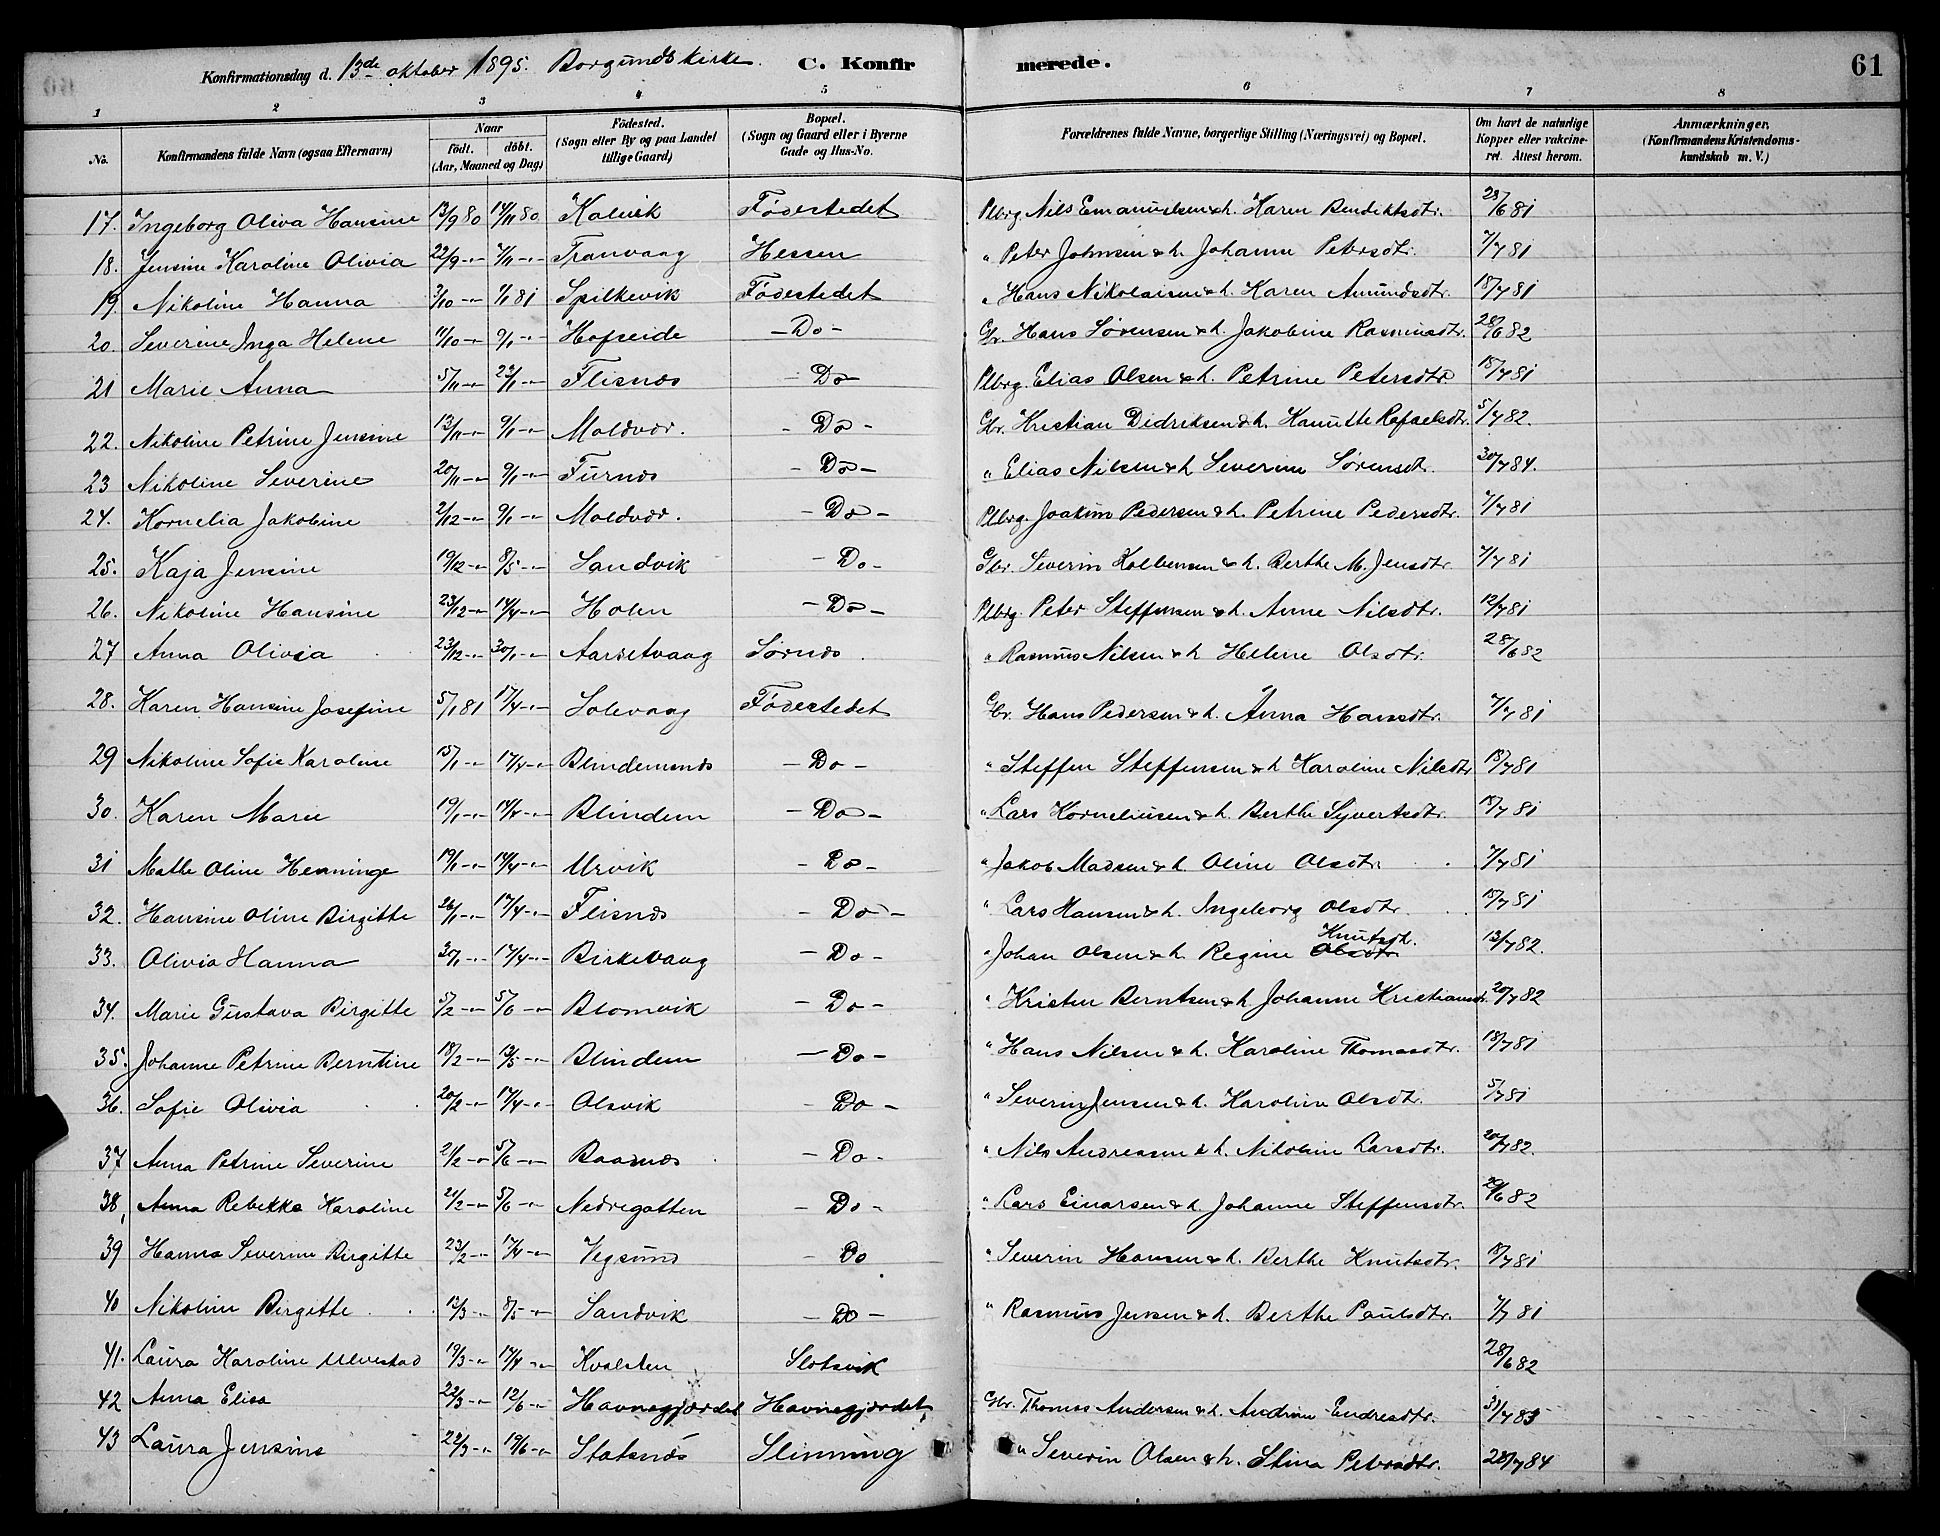 Konfirmationsdag d. 13de oktober 1895. Borgunds kirke. C. Konfirmerede. 61
1 2 3 4 5 6 7 8
No. Konfirmandens fulde Navn (ogsaa Efternavn) Naar födt. döbt. (Aar, Maaned og Dag) Födested. (Sogn eller By og paa Landet tillige Gaard) Bopæl. (Sogn og Gaard eller i Byerne Gade og Hus-No. Forældrenes fulde Navne, borgerlige Stilling (Næringsvei) og Bopæl. Om havt de naturlige Kopper eller vakcineret. Attest herom. Anmærkninger. (Konfirmandens Kristendomskundskab m. V.)
17. Ingeborg Oliva Hansine 13/9 80 14/11 80 Kalvik Fødestedet Plbrg. Nils Emanuelsen & h. Karen Bendiktsdtr. 28/6 81
18. Jensine Karoline Olivia 22/9 -"- 7/11 -"- Tranvaag Hessen " Peter Johnsen & h. Johanne Petersdtr. 7/7 81
19. Nikoline Hanna 3/10 -"- 1/1 81 Spilkevik Fødestedet " Hans Nikolaisen & h. Karen Amundsdtr. 18/7 81
20. Severine Inga Helene 11/10 -"- 9/1 -"- Hofseide - Do - Gbr. Hans Sørensen & h. Jakobine Rasmusdtr. 28/6 82
21 Marie Anna 5/11 -"- 23/1 -"- Flisnæs - Do - Plbrg. Elias Olsen & h. Petrine Petersdtr 18/7 81
22. Nikoline Petrine Jensine 13/11 -"- 9/1 -"- Moldvær. - Do - Gbr. Kristian Didriksen & h. Hanutte Rafaelsdtr. 5/7 82.
23 Nikoline Severine 20/11 -"- 9/1 -"- Furnæs - Do - " Elias Nilsen & h Severine Sørensdtr. 30/7 84.
24. Kornelia Jakobine 2/12 -"- 9/1 -"- Moldvær. - Do - Plbrg. Joakim Pedersen & h. Petrine Pedersdtr. 7/7 81
25. Kaja Jensine 19/12 -"- 8/5 -"- Sandvik - Do - Gbr. Severin Kolbensen & h. Berthe M. Jensdtr. 7/7 81
26. Nikoline Hansine 23/12 -"- 14/4 -"- Holen - Do - Plbrg. Peter Steffensen & h. Anne Nilsdtr. 12/7 81
27 Anna Olivia 23/12 -"- 30/1 -"- Aarsetvaag Sørnæs. " Rasmus Nilsen & h Helene Olsdtr. 28/6 82
28. Karen Hansine Josefine 5/1 81 17/4 -"- Solevaag Fødestedet Gbr. Hans Pedersen & h. Anna Hansdtr. 7/7 81
29 Nikoline Sofie Karoline 15/1 -"- 17/4 -"- Blindemsnæs - Do - " Steffen Steffensen & h Karoline Nilsdtr 18/7 81
30. Karen Marie 19/1 -"- 14/4 -"- Blindem - Do - " Lars Korneliusen & h. Berthe Syvertsdtr. 18/7 81
31 Mathe Oline Henninge 19/1 -"- 14/4 -"- Urvik - Do - " Jakob Madsen & h. Oline Olsdtr. 7/7 81
32. Hansine Oline Birgitte 26/1 -"- 17/4 -"- Flisnæs - Do - " Lars Hansen & h. Ingeborg Olsdtr. 18/7 81
33. Olivia Hanna 30/1 -"- 17/4 -"- Birkevaag - Do - " Johan Olsen & h. Regine Knutsdt. Olsdtr. 13/7 82.
34. Marie Gustava Birgitte 5/2 -"- 5/6 -"- Blomvik - Do - " Kristen Berntsen & h. Johanne Kristiansdtr. 20/7 82
35. Johanne Petrine Berntine 18/2 -"- 13/5 -"- Blindem - Do - " Hans Nilsen & h. Karoline Thomasdtr. 18/7 81
36. Sofie Olivia 20/2 -"- 17/4 -"- Olsvik - Do - " Severin Jensen & h. Karoline Olsdtr. 5/7 81
37 Anna Petrine Severine 21/2 -"- 5/6 -"- Baasnæs. - Do - " Nils Andreasen & h. Nikoline Larsdtr. 20/7 82.
38, Anna Rebekka Karoline 21/2 -"- 5/6 -"- Nedregotten - Do - " Lars Einarsen & h. Johanne Steffensdtr. 29/6 82
39 Hanna Severine Birgitte 23/2 -"- 17/4 -"- Vegsund - Do " Severin Hansen & h. Berthe Knutsdtr. 18/7 81
40 Nikoline Birgitte. 13/3 -"- 8/5 -"- Sandvik - Do - " Rasmus Jensen & h. Berthe Paulsdtr. 7/7 81
41. Laura Karoline Ulvestad 19/3 -"- 17/4 -"- Kvalsten Slotsvik 28/6 82
42 Anna Elisa 22/3 -"- 12/6 -"- Havnegjærdet Havnegjærdet, Gbr. Thomas Andersen & h. Andrine Endresdtr. 31/7 83
43 Laura Jensine 22/3 -"- 19/6 -"- Stotsnæs Slinning " Severin Olsen & h. Stina Petersdtr. 28/7 84